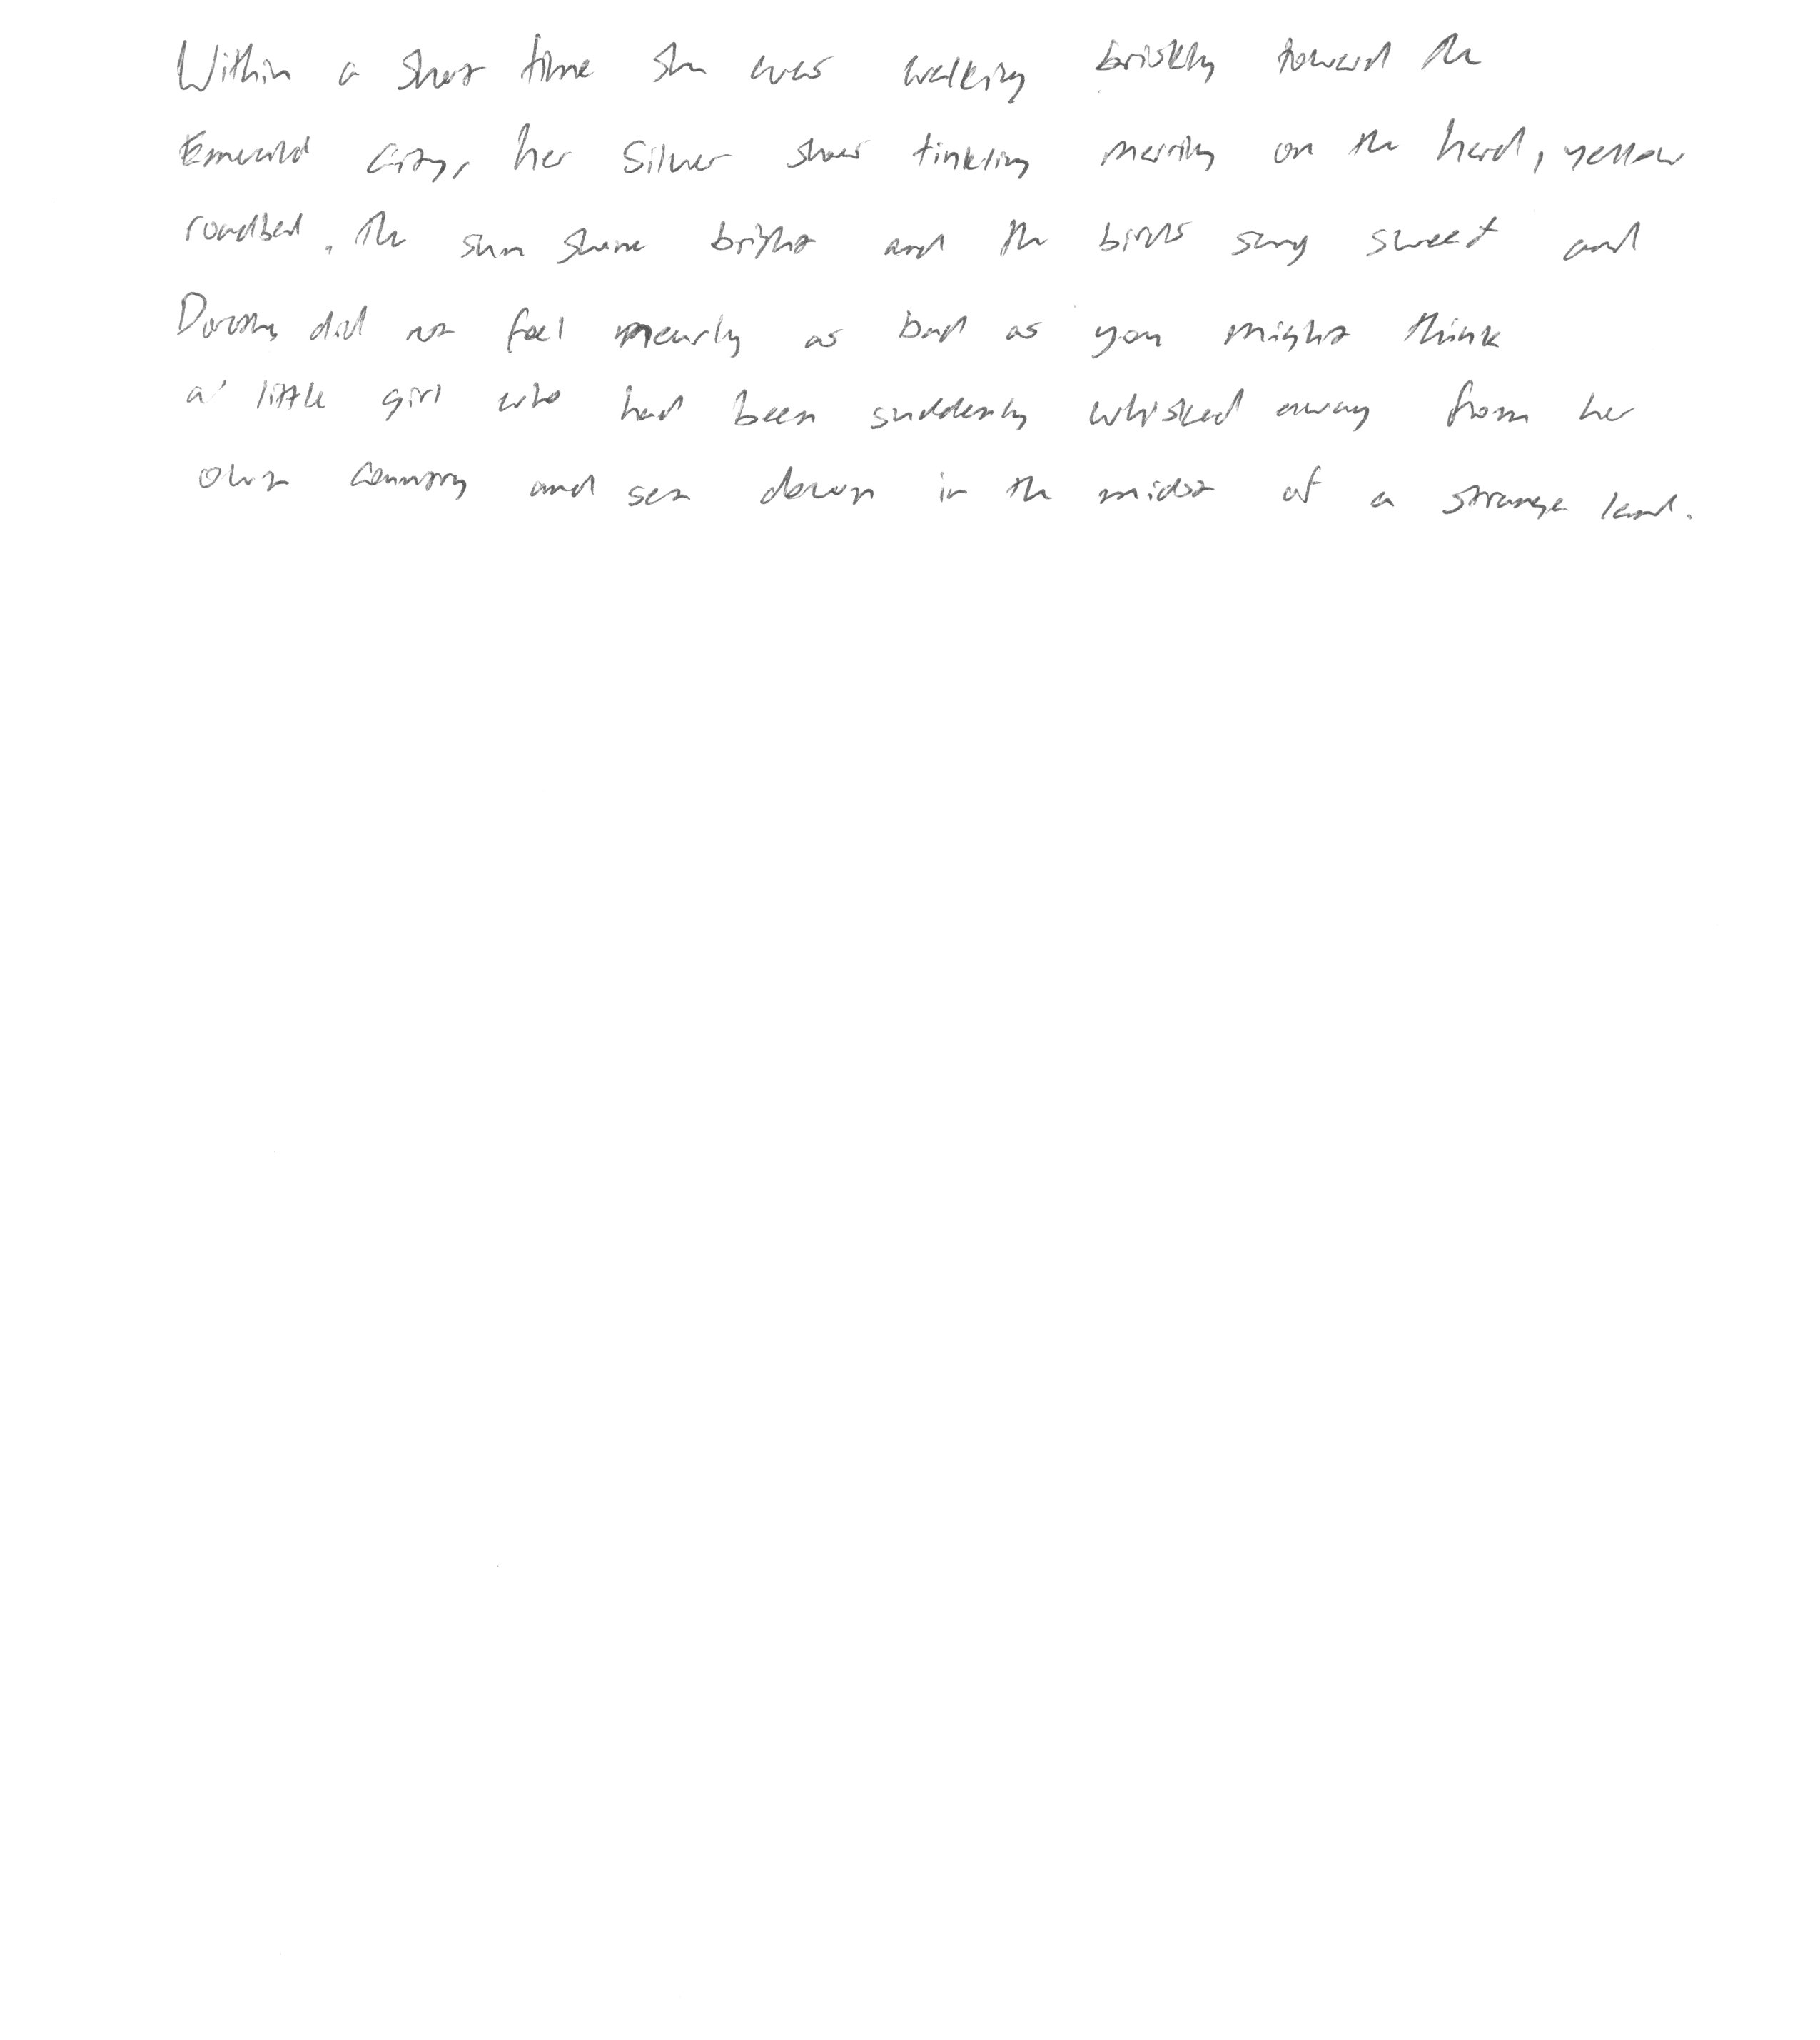 Within a short time she was walking briskly toward the
Emerald City, her Silver shoes tinkling merrily on the hard, yellow
roadbed. The sun shone bright and the birds sang sweet and
Dorothy did not feel nearly as bad as you might think
a little girl who had been suddenly whisked away from her
own country and set down in the midst of a strange land.